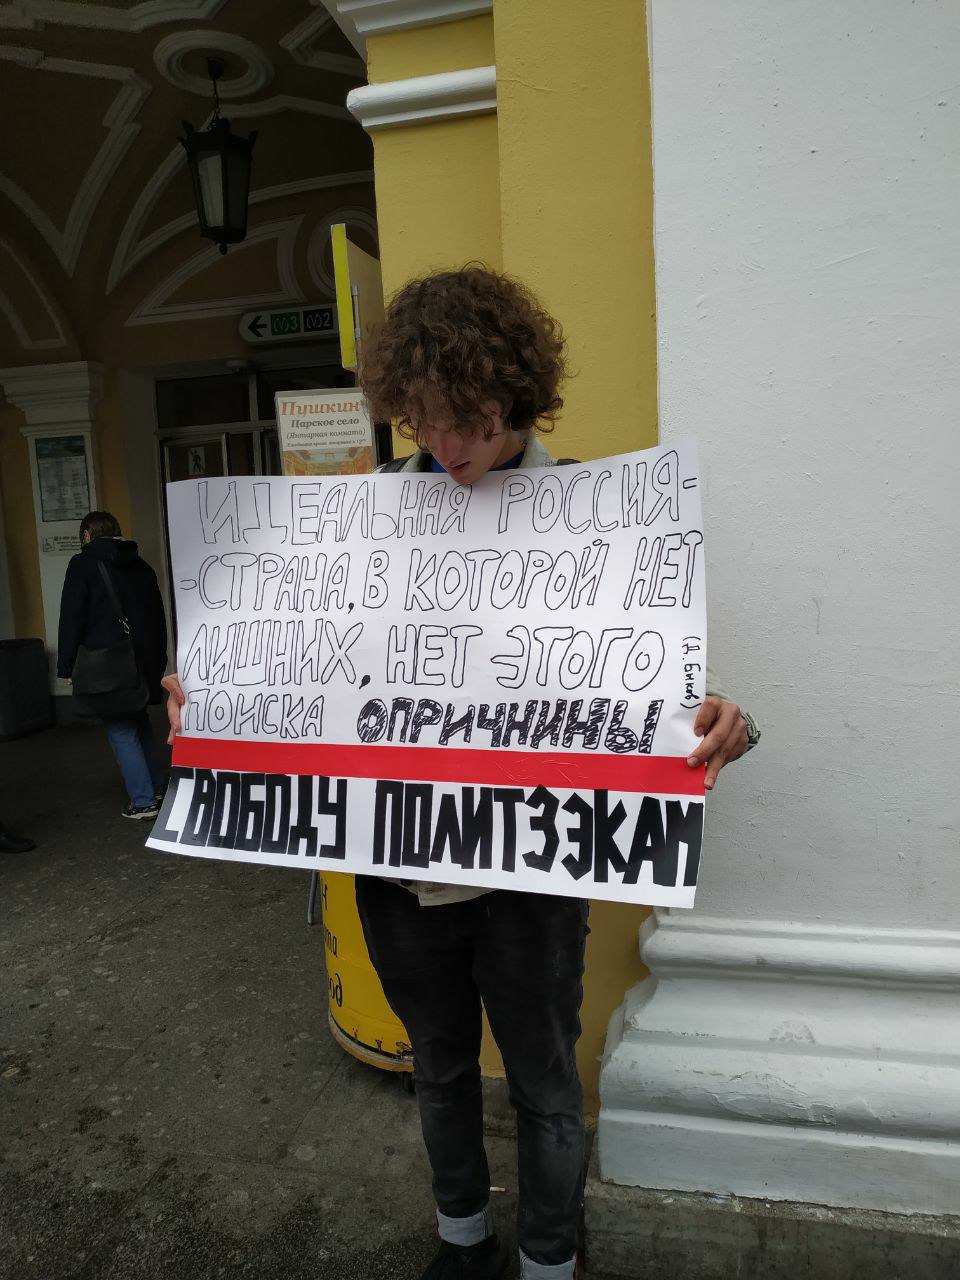 3 2
Пушкин
Царское село
(Янтарная комната)
ИДЕАЛЬНАЯ РОССИЯ-
-СТРАНА, В КОТОРОЙ НЕТ
ЛИШНИХ, НЕТ ЭТОГО
ПОИСКА ОПРИЧНИНЫ
(Д. Быков)
СВОБОДУ ПОЛИТЗЭКАМ